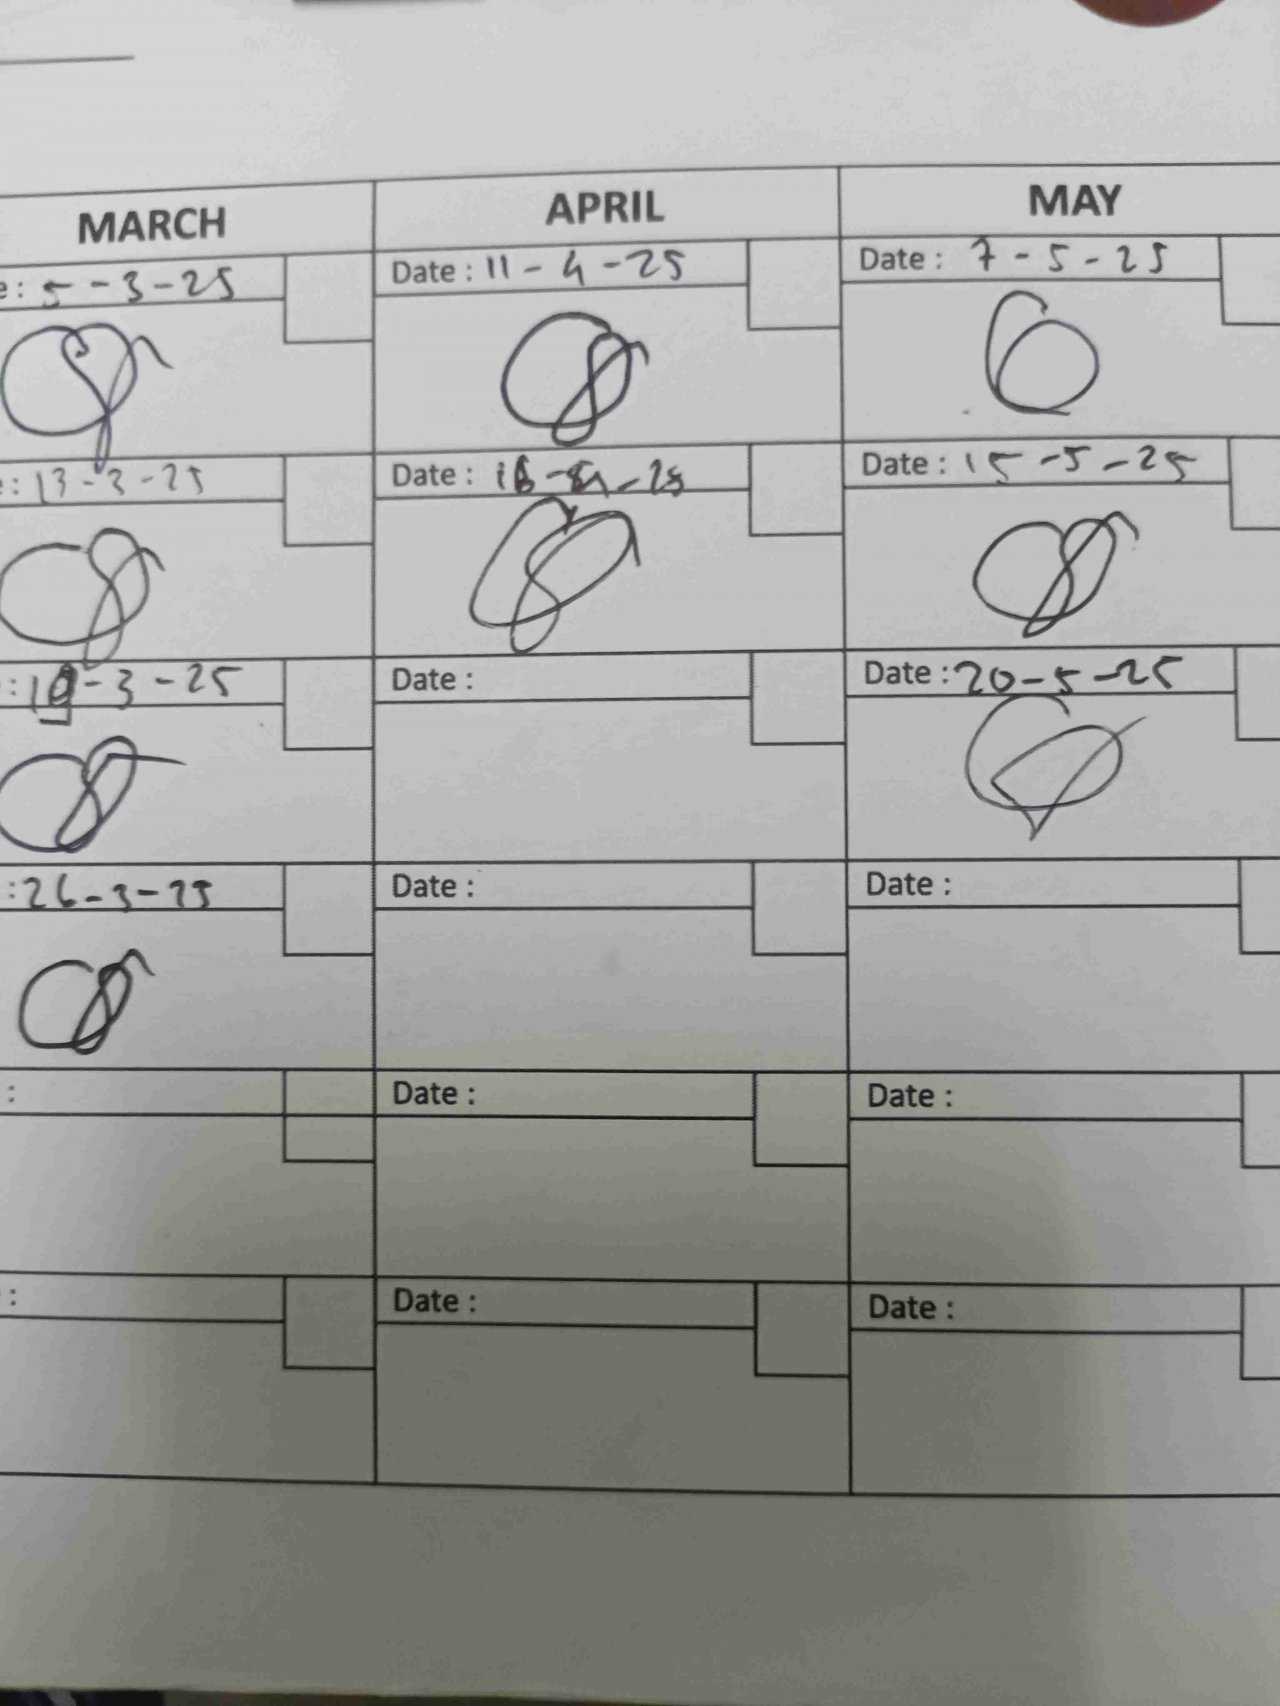 MARCH APRIL MAY
e : 5-3-25 Date : 11-4-25 Date : 7-5-25
e : 13-3-25 Date : Date : 15-5-25
: Date : Date : 20-5-25
: 26-3-25 Date : Date :
: Date : Date :
: Date : Date :